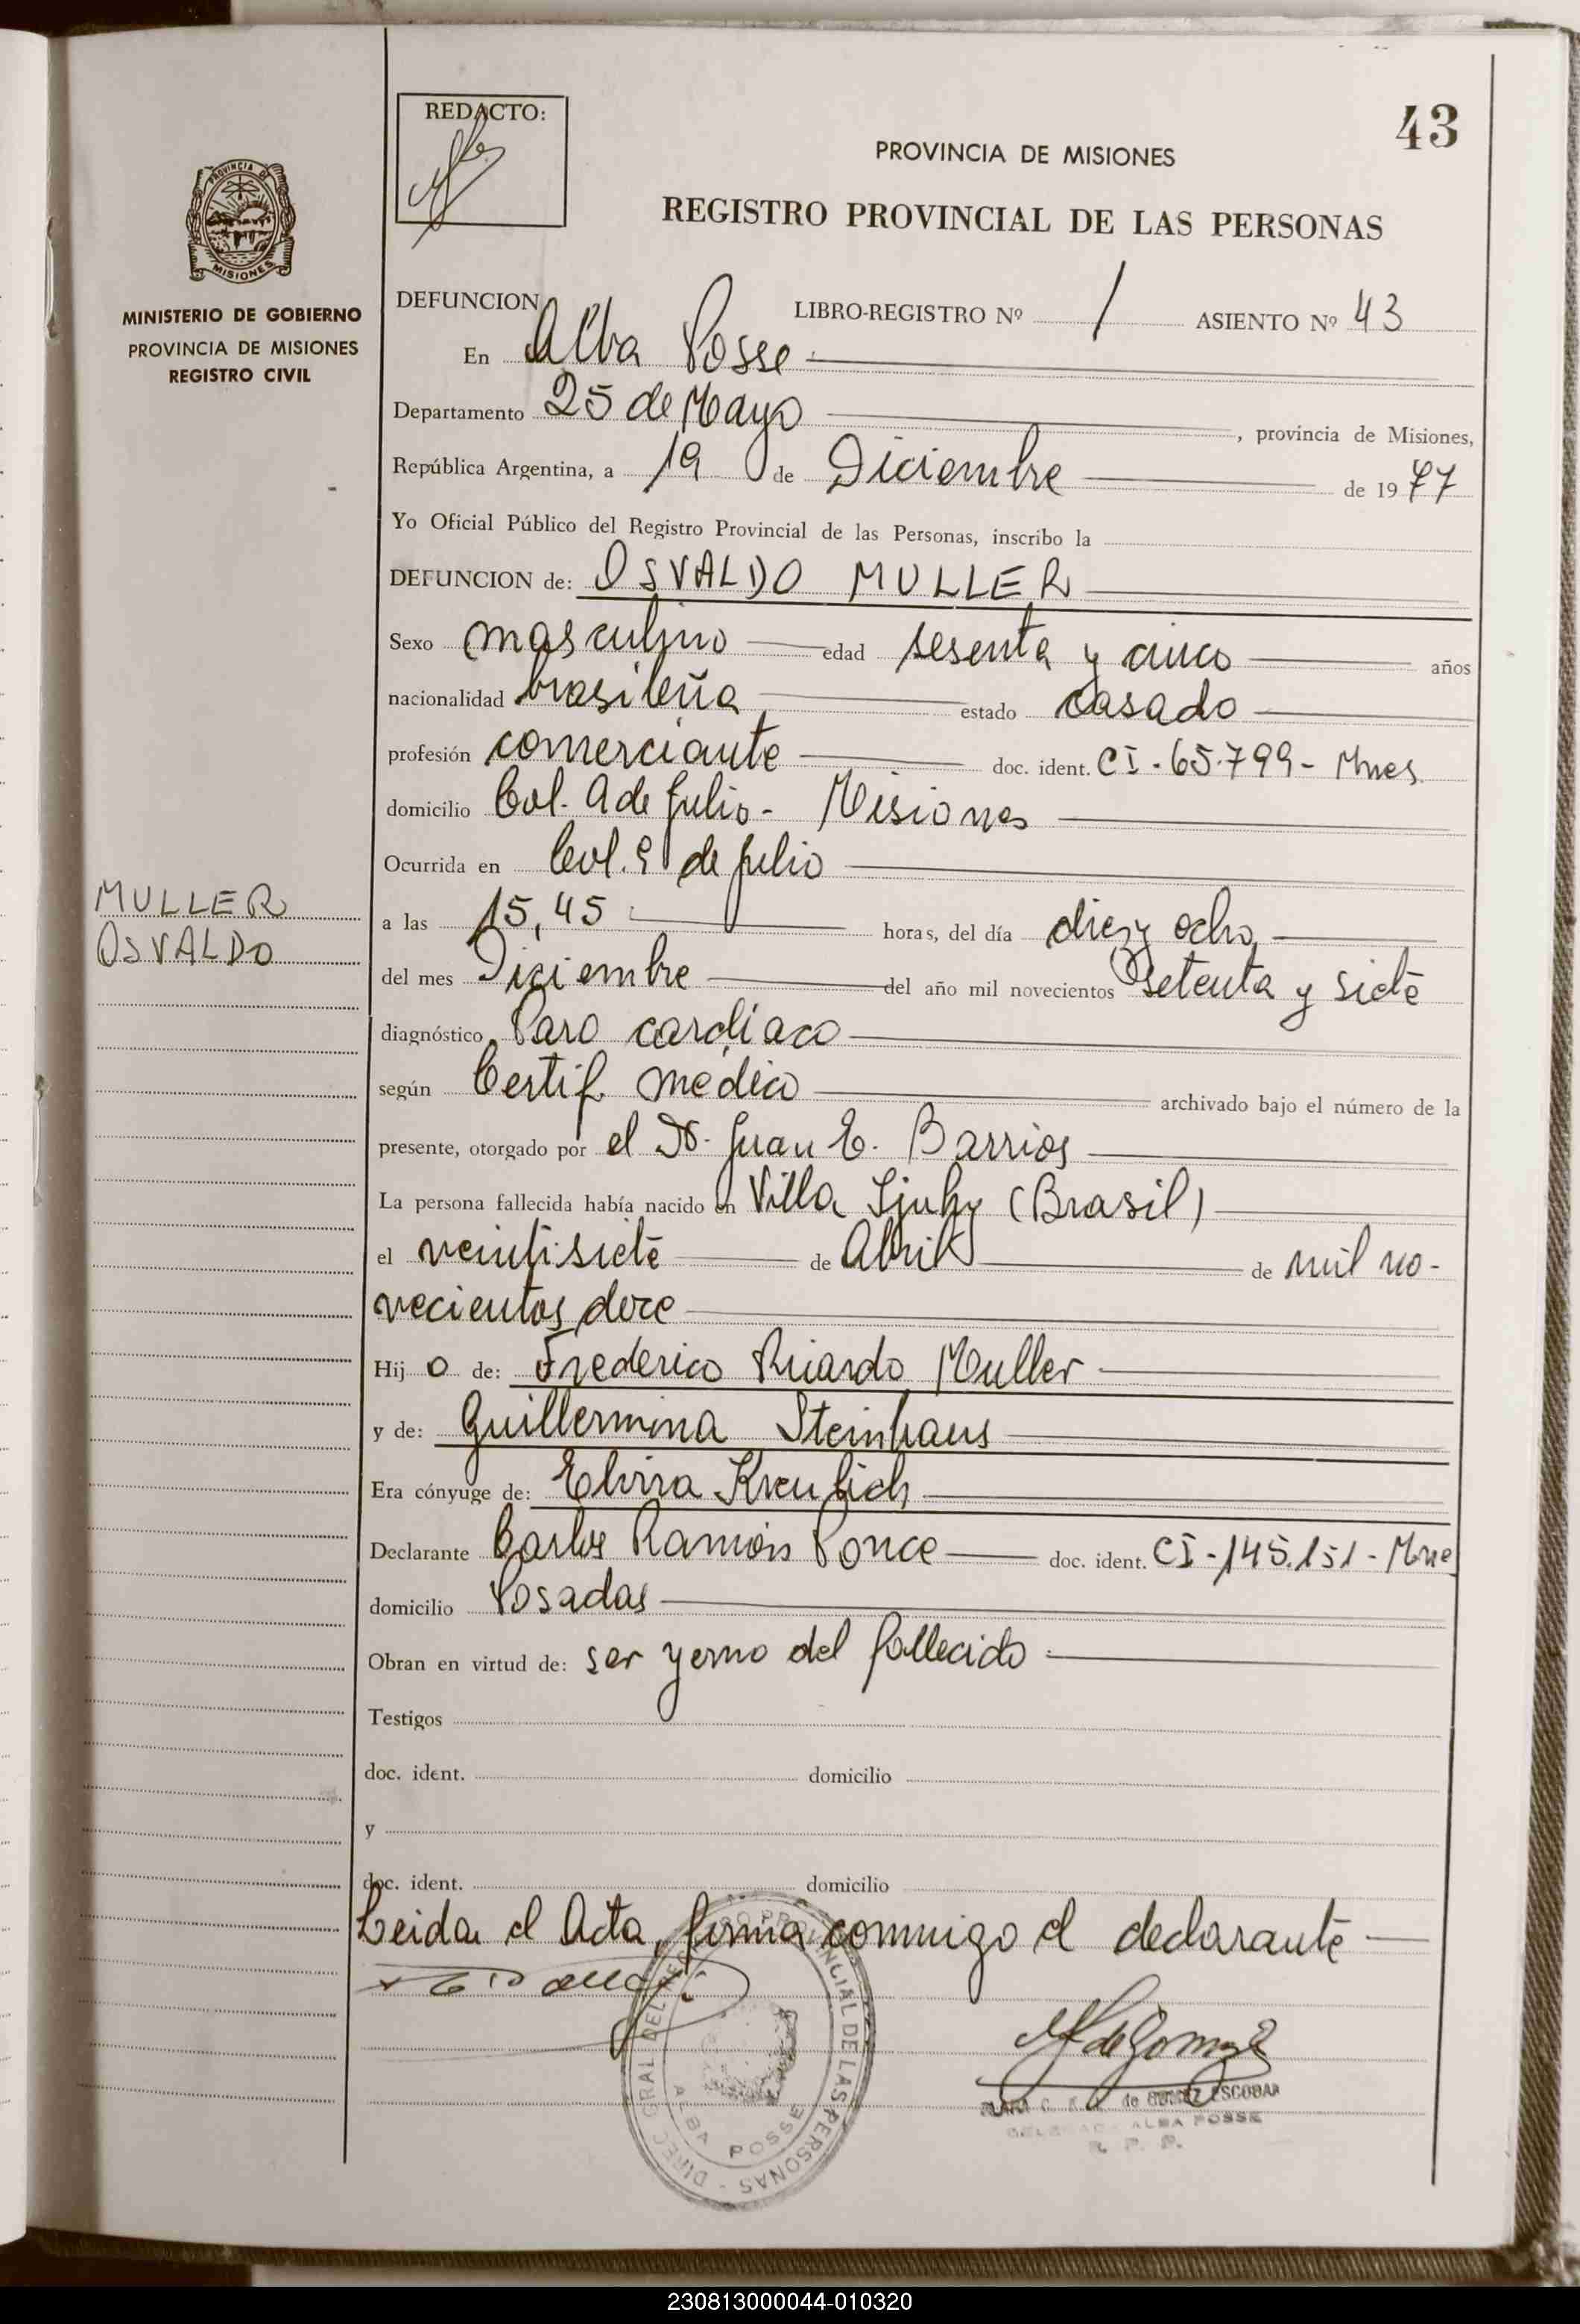 43
REDACTO:
PROVINCIA DE MISIONES
REGISTRO PROVINCIAL DE LAS PERSONAS
PROVINCIA D
MISIONES
MINISTERIO DE GOBIERNO
PROVINCIA DE MISIONES
REGISTRO CIVIL
DEFUNCION LIBRO-REGISTRO Nº 1 ASIENTO Nº 43
En Alba Posse
Departamento 25 de Mayo, provincia de Misiones,
República Argentina, a 19 de Diciembre de 1977
Yo Oficial Público del Registro Provincial de las Personas, inscribo la
DEFUNCION de: OSVALDO MULLER
Sexo masculino edad sesenta y cinco años
nacionalidad brasileña estado casado
profesión comerciante doc. ident. CI-65.799- Mnes
domicilio Col. 9 de Julio- Misiones
Ocurrida en Col. 9 de Julio
MULLER
OSVALDO
a las 15,45 horas, del día diez y ocho
del mes Diciembre del año mil novecientos setenta y siete
diagnóstico Paro cardíaco
según Certif. médico archivado bajo el número de la
presente, otorgado por el Dr. Juan E. Barrios
La persona fallecida había nacido en Villa Ijuhy (Brasil)
el veintisiete de Abril de mil no-
vecientos doce
Hijo de: Frederico Ricardo Muller
y de: Guillermina Steinhaus
Era cónyuge de: Elvira
Declarante Carlos Ramón Ponce doc. ident. CI-145.151-Mne
domicilio Posadas
Obran en virtud de: ser yerno del fallecido
Testigos
doc. ident. domicilio
y
doc. ident. domicilio
Leida el Acta, firma conmigo el declarante
DIREC GRAL DEL REG PROVINCIAL DE LAS PERSONAS -
ALBA POSSE
de GOMEZ ESCOBAR
ALBA POSSE
R. P. P.
230813000044-010320